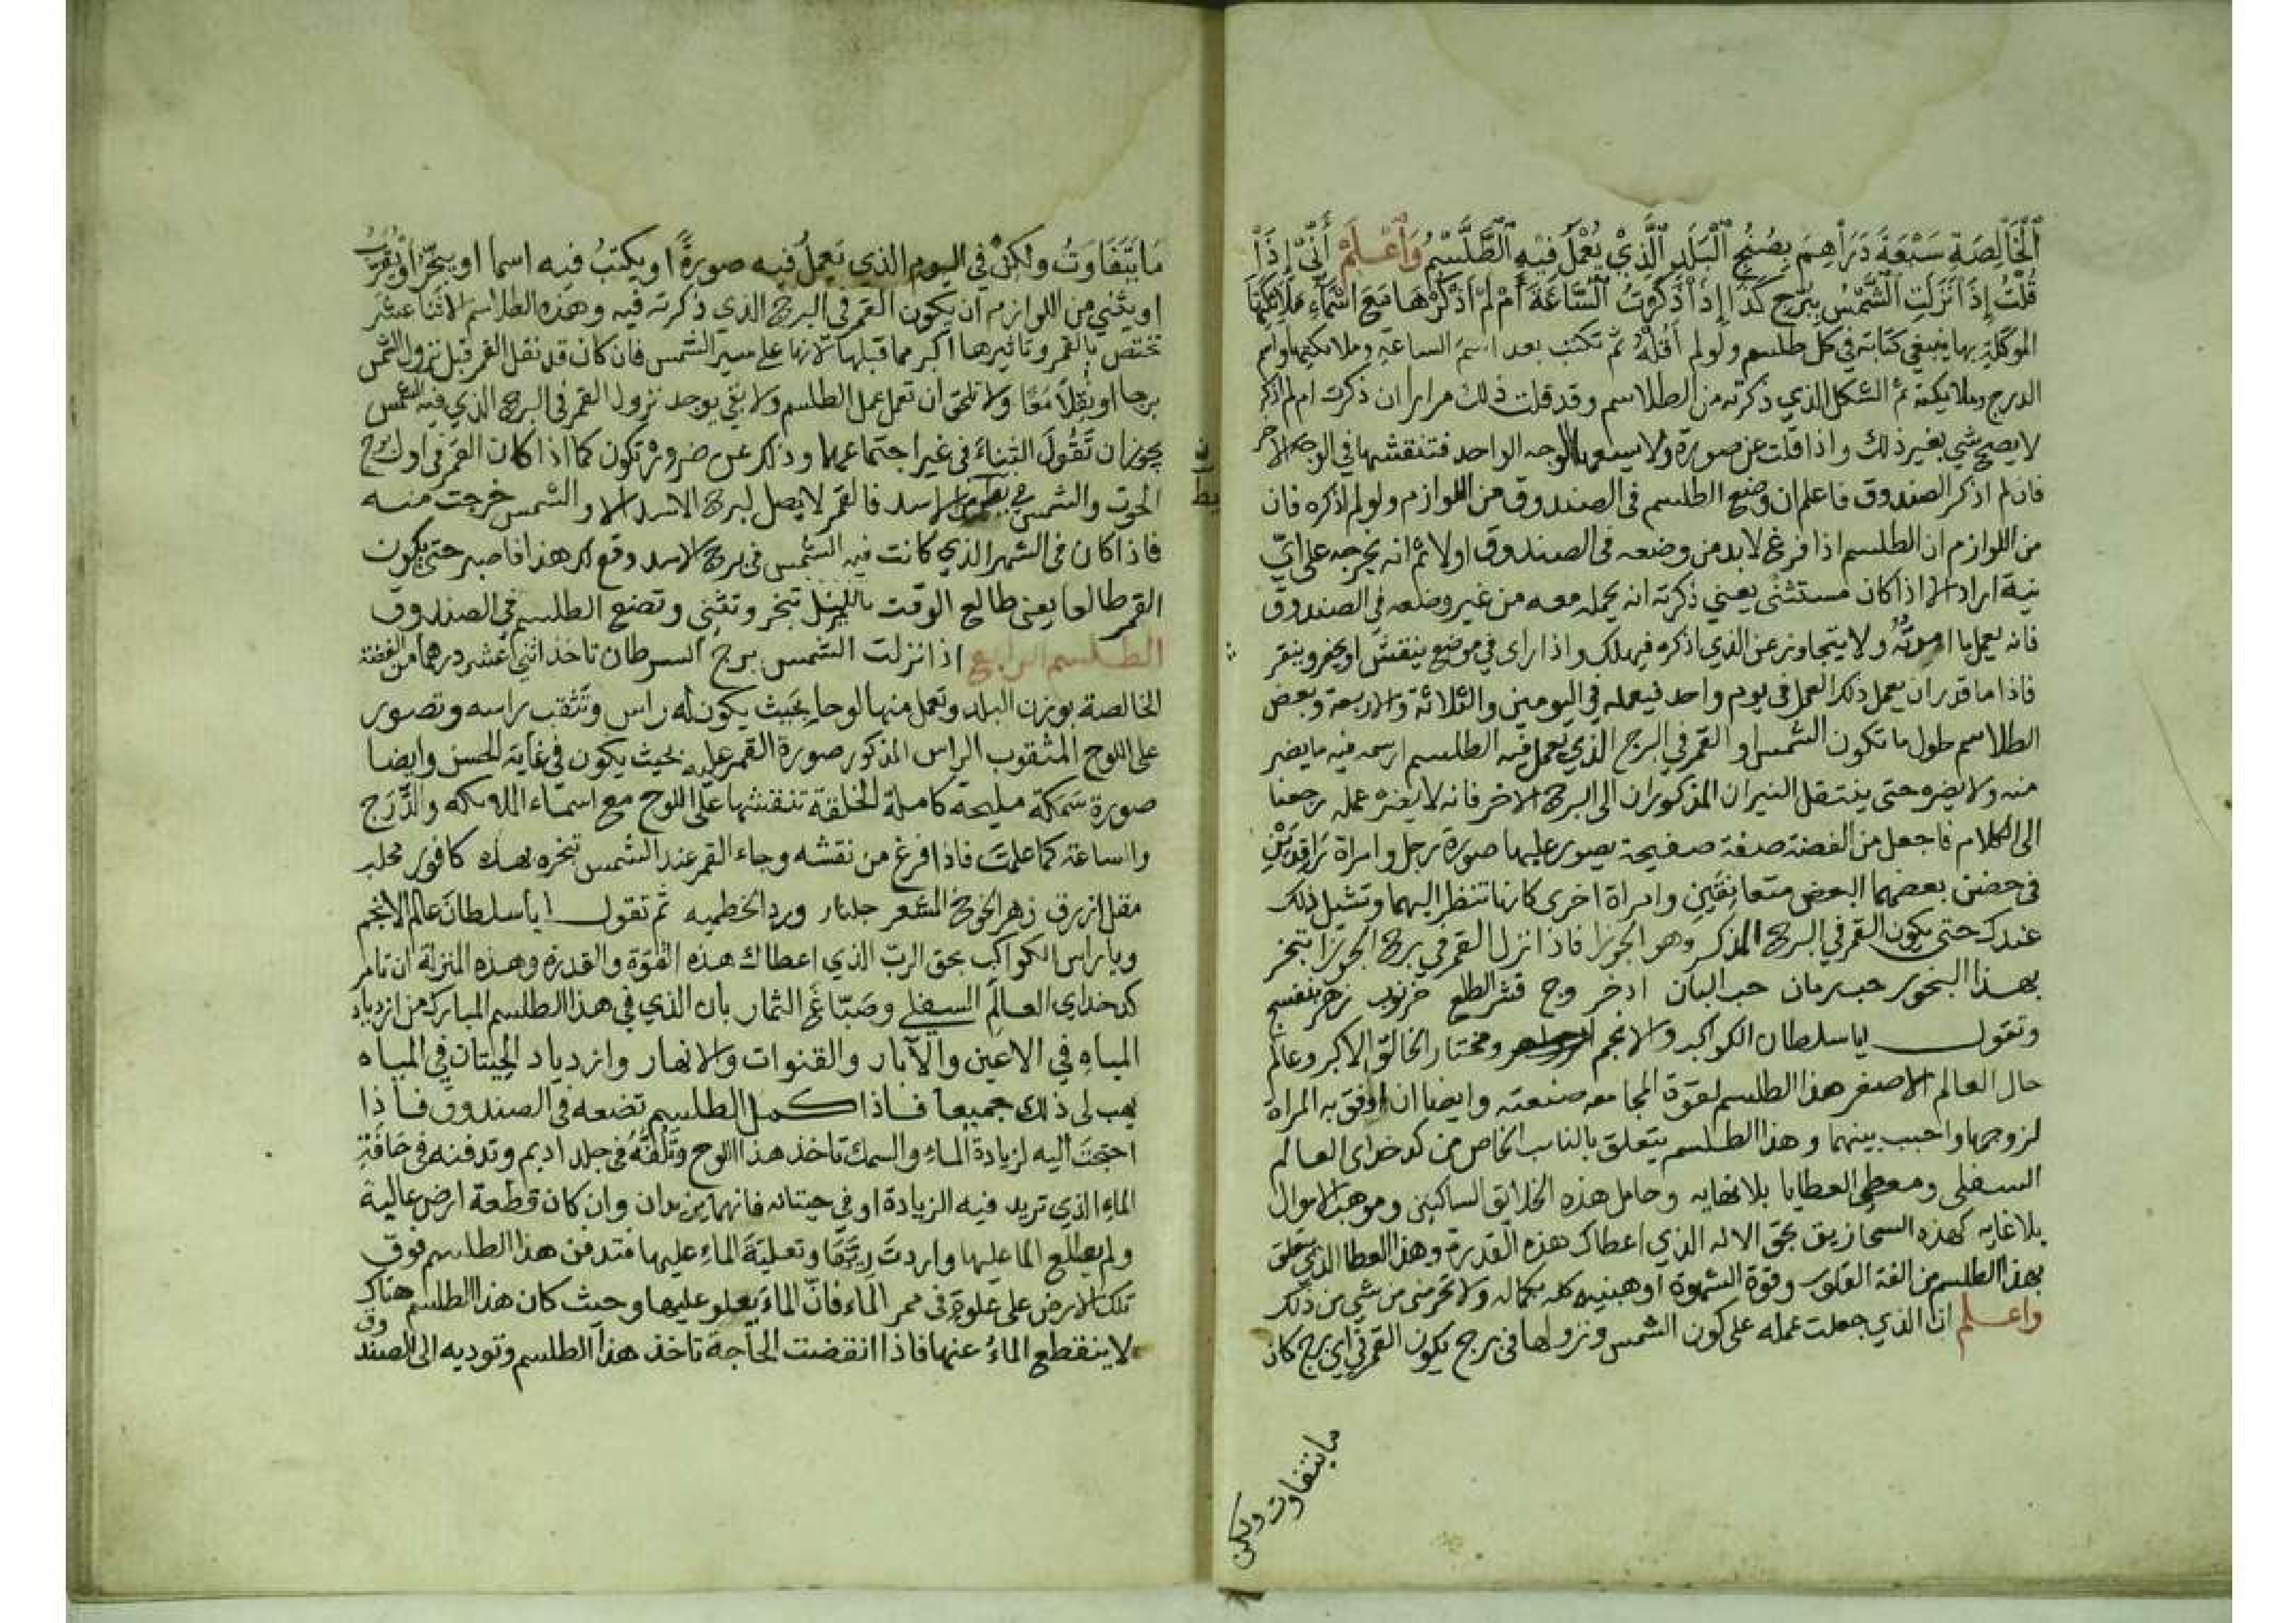 اَلْخَالِصَةِ سَبْعَةَ دَرَاهِمَ بِصُنُجِ اَلْبَلَدِ اَلَّذِيْ يُعْمَلُ فِيْهِ اَلطَّلَّسْمُ وَاَعْلَمْ أَنِّيْ إِذَاْ
قُلْتُ إِذَاْ نَزَلَتِ اَلشَّمْسُ بِبُرْجِ كَذَاْ إِذَاْ ذَكَرْتُ اَلسَّاعَةَ أَمْ لَمْ أَذْكُرْهَا مَعَ اسْمَاءِ مَلَائِكَتِهَا
الموكلة بها ينبغي كتابته في كل طلسم ولو لم أقله ثم تكتب بعد اسم الساعة وملائكتها واسم
الدرج وملائكته ثم الشكل الذي ذكرته من الطلاسم وقد قلت ذلك مرارا ان ذكرت ام لم اذكر
لا يصح شي بغير ذلك واذا قلت عن صورة ولا يسعها الوجه الواحد فتنقشها في الوجه الاخر
فان لم اذكر الصندوق فاعلم ان وضع الطلسم في الصندوق من اللوازم ولو لم اذكره فان
من اللوازم ان الطلسم اذا فرغ لا بد من وضعه في الصندوق اولا ثم انه يخرجه على ايّ
نية اراد الا اذا كان مستثنى يعني ذكرته انه يحمله معه من غير وضعه في الصندوق
فانه يعمل ما امرته ولا يتجاوز عن الذي اذكره فيهلك واذا راى في موضع ينقش او يحفر وينقر
فاذا ما قدر ان يعمل ذلك العمل في يوم واحد فيعمله في اليومين والثلاثة والاربعة وبعض
الطلاسم طول ما تكون الشمس او القمر في البرج الذي تعمل فيه الطلسم ارسمه فيه ما يضر
منه ولا يضره حتى ينتقل النيران المذكوران الى البرج الاخر فانه لا يعنره عمله رجعنا
الى الكلام فاجعل من الفضة صفة صفيحة يصور عليها صورة رجل وامراة راقدين
في حضن بعضهما البعض متعانقين وامراة اخرى كانها تنظر اليهما وتشيل ذلك
عندك حتى يكون القمر في البرج المذكر وهو الجوزا فاذا نزل القمر في برج الجوزا تبخر
بهذا البخور حب رمان حب البان اذخر وج قشر الطلع خرنوب زهر بنفسج
وتقول ايا سلطان الكواكب والانجم ومختار الخالق الاكبر وعالم
حال العالم الاصغر هذا الطلسم لقوة المجامعه صنعته وايضا ان اوفق به المراة
لزوجها واحبب بينهما وهذا الطلسم يتعلق بالنايب الخاص من كدخداى العالم
السفلى ومعطى العطايا بلا نهايه وحامل هذه الخلائق الساكنين وموهب الاموال
بلا غايه كهذه السحازيق بحق الاله الذي اعطاك هذه القدرة وهذا العطا الذي يتعلق
بهذا الطلسم من الفة القلوب وقوة الشهوة او هبنيه كله بكماله ولا تحرمنى من شي من ذلك
واعلم ان الذي جعلت عمله على كون الشمس ونزولها في برج يكون القمر في اي برج كان
ما يتفاوت ولكن
مَا يَتَفَاوَتُ ولكِنْ في اليوم الذي تعمل فيه صورةً او يكتبُ فيه اسما او يبخّر او يُقرّبُ
او يثني من اللوازم ان يكون القمر في البرج الذي ذكرته فيه وهذه الطلاسم الاثنا عشر
تختص بالقمر وتاثيرها اكبر مما قبلها لانها على مسير الشمس فان كان قد نقل القمر قبل نزول الشمس
برجا او نقلا معًا ولا تلحق ان تعمل عمل الطلسم ولا بقي يوجد نزول القمر في البرج الذي فيه الشمس
يجوز ان تقول الثناء في غير اجتماعهما وذلك عن ضرورة تكون كما اذا كان القمر في اول برج
الحوت والشمس في الاسد فالقمر لا يصل لبرج الاسد الا والشمس خرجت منه
فاذا كان في الشهر الذي كانت فيه الشمس في برج الاسد وقع لك هذا فاصبر حتى يكون
القمر طالعا يعنى طالع الوقت بالليل تبخر وتثنى وتضع الطلسم في الصندوق
الطلسم الرابع اذا نزلت الشمس برج السرطان تاخذ اثنى عشر درهما من الفضة
الخالصة بوزن البلد وتعمل منها لوحا بحيث يكون له راس وتثقب راسه وتصور
على اللوح المثقوب الراس المذكور صورة القمر عليه بحيث يكون في غاية الحسن وايضا
صورة سمكة مليحة كاملة الخلقة تنقشها على اللوح مع اسماء الملائكه والدَّرَج
والساعة كما علمت فاذا فرغ من نقشه وجاء القمر عند الشمس تبخره بهذه كافور محلب
مقل ازرق زهر الخوخ المشعر جلنار ورد الخطميه ثم تقول ايا سلطان عالم الانجم
ويا راس الكواكب بحق الربّ الذي اعطاك هذه القوة والقدرة وهذه المنزلة ان تامر
كدخداى العالم السفلى وصَبّاغ الثمار بان الذي في هذا الطلسم المبارك من ازدياد
المياه في الاعين والآبار والقنوات والانهار وازدياد الحيتان في المياه
يهب لي ذلك جميعا فاذا كمل الطلسم تضعه في الصندوق فاذا
احتجت اليه لزيادة الماءِ والسمك تاخذ هذا اللوح وتلفّه في جلد اديم وتدفنه في حافة
الماءِ الذي تريد فيه الزيادة او في حيتانه فانهما يزيدان وان كان قطعة ارض عالية
ولم يطلع الما عليها واردت وتعلية الماءِ عليها فتدفن هذا الطلسم فوق
تلك الارض على علوة في ممر الماء فانّ الماءَ يعلو عليها وحيث كان هذا الطلسم هناك
لا ينقطع الماءُ عنها فاذا انقضت الحاجة تاخذ هذا الطلسم وتوديه الى الصندوق